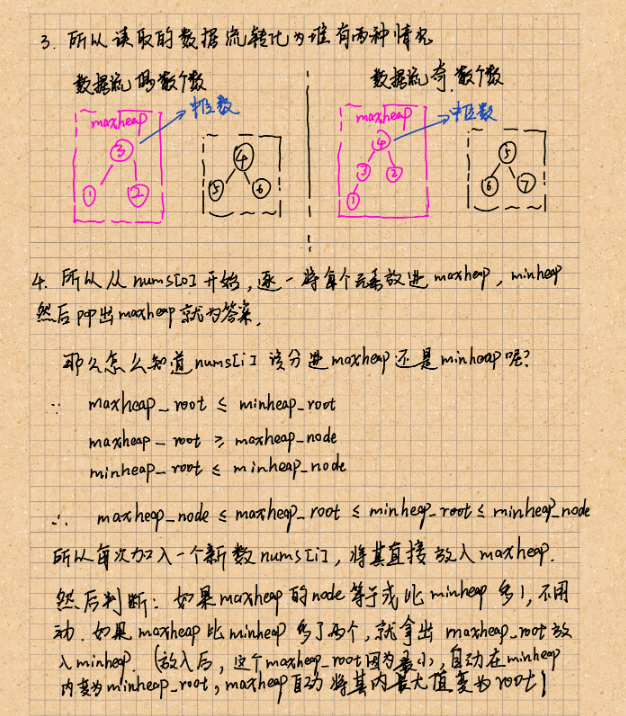 3. 所以读取的数据流转化为堆有两种情况
数据流偶数个数
数据流奇数个数
maxheap
中位数
3
1
2
4
5
6
maxheap
中位数
4
3
2
1
5
6
7
4. 所以从 nums[0] 开始, 逐一将每个元素放进 maxheap, minheap
然后pop出maxheap就为答案.
那么怎么知道nums[i] 该分进maxheap还是minheap呢?
∵ maxheap_root ≤ minheap_root
maxheap_root ≥ maxheap_node
minheap_root ≤ minheap_node
∴ maxheap_node ≤ maxheap_root ≤ minheap_root ≤ minheap_node
所以每次加入一个新数nums[i], 将其直接放入maxheap.
然后判断: 如果maxheap的node等于或比 minheap 多1, 不用
动. 如果 maxheap比minheap 多了两个, 就拿出 maxheap_root放
入minheap. (放入后, 这个maxheap_root因为最小, 自动在minheap
内变为minheap_root, maxheap自动将其内最大值变为root)